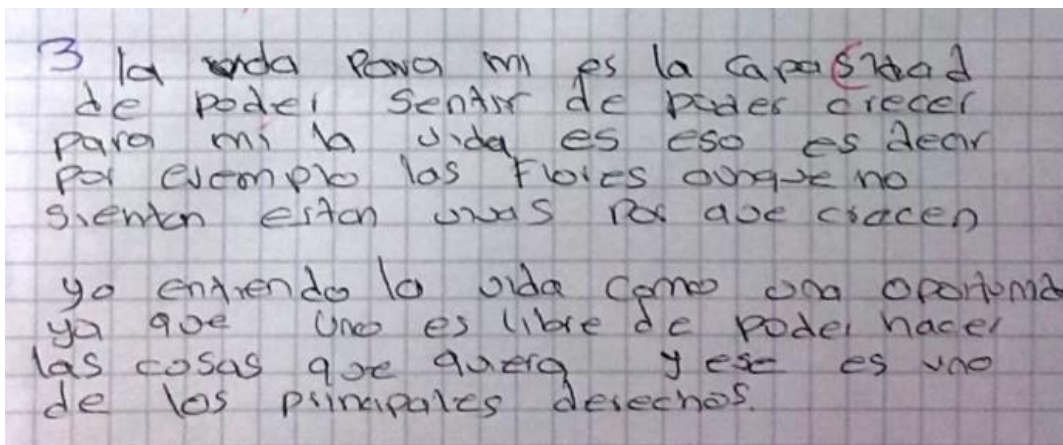 3 la vida Para mi es la capasidad
de poder sentir de poder crecer
para mi la vida es eso es decir
por ejemplo las flores aunque no
sientan estan vivas Por que crecen
yo entiendo la vida como una oportunid
ya que uno es libre de poder hacer
las cosas que quera y ese es uno
de los principales derechos.